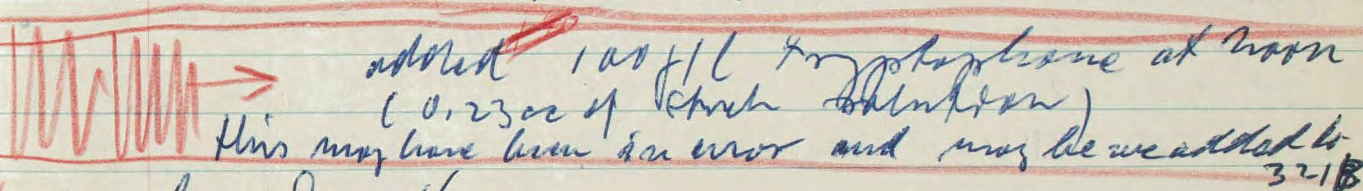 added 100γ/l tryptophane at noon
(0.23cc of stock solution)
this may have been in error and may be we added to
321B